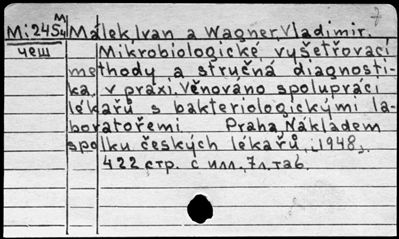 7
M
M:245ч Málek, Ivan a Wagner, Vladimir.
чеш Mikrobiologické vyšetřovací
methody a stručná diagnosti-
ka v praxi. Věnováno spolupráci
lékařů s bakteriologickými la-
boratořemi Praha, Nákladem
spolku českých lékařů, [1948].
422 стр. с илл., 7л. таб.